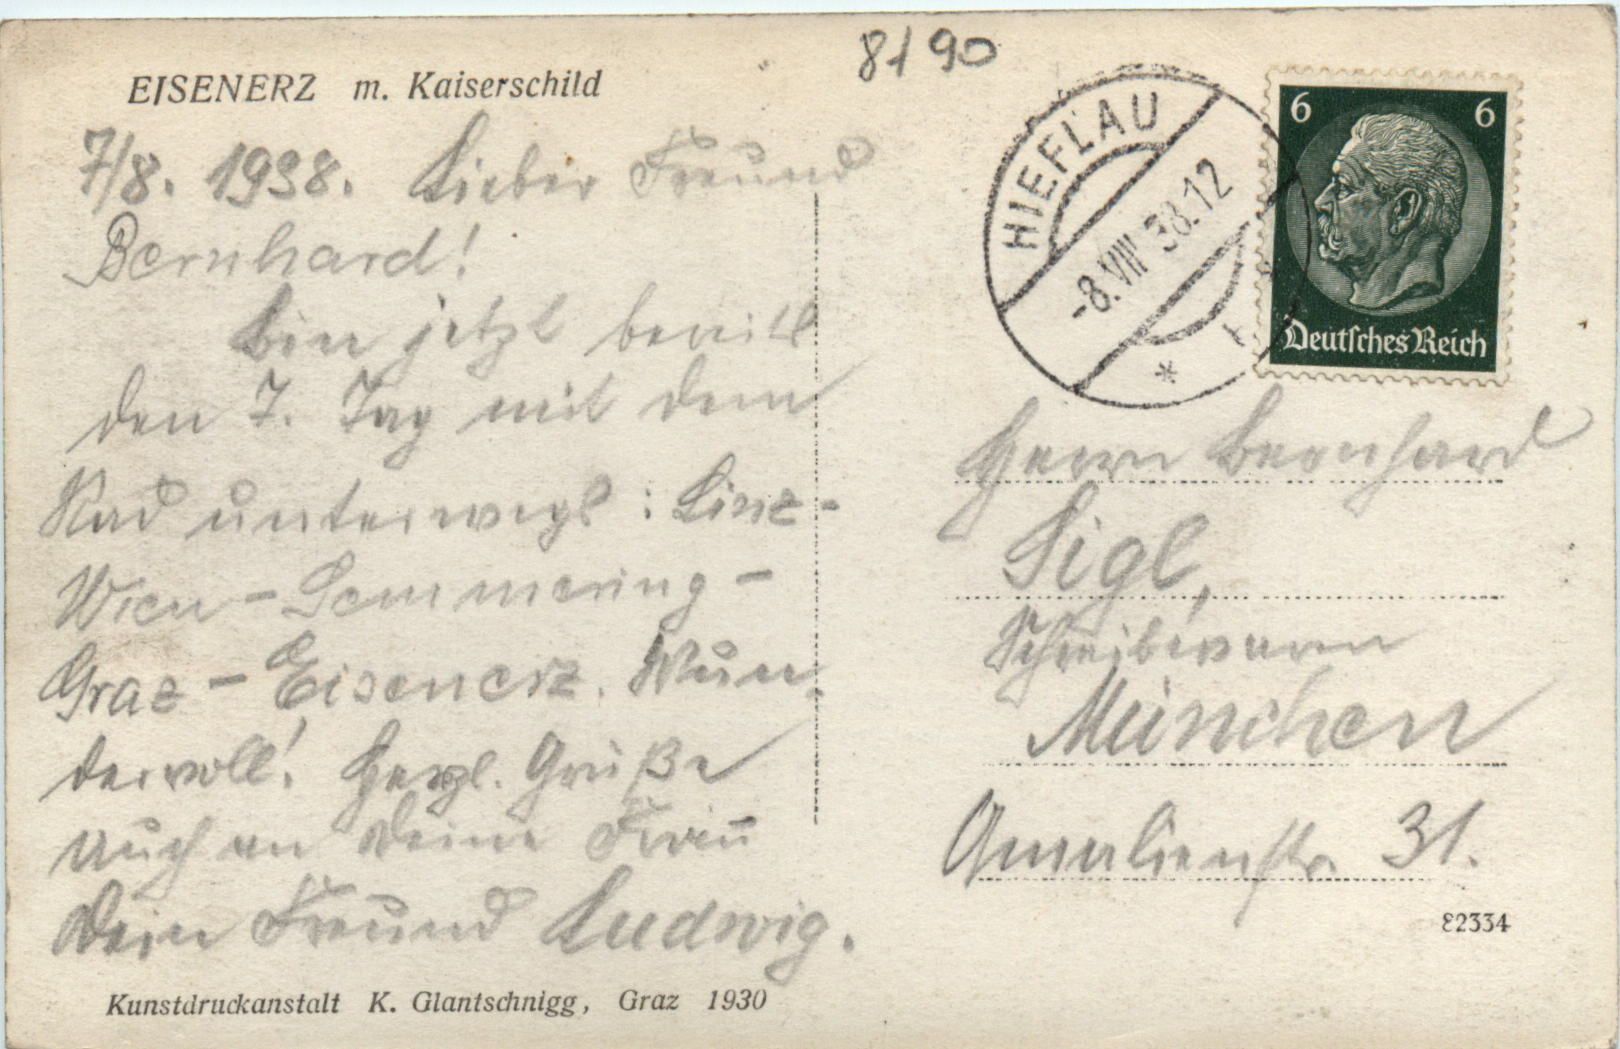 8190
EISENERZ m. Kaiserschild
7/8. 1938. Lieber Freund
Bernhard!
bin jetzt bereits
den 7. Tag mit dem
Rad unterwegs: Linz-
Wien - Semmering -
Graz - Eisenerz. Wun-
dervoll! Herzl. Grüße
auch an Deine Frau
Dein Freund Ludwig.
Kunstdruckanstalt K. Glantschnigg, Graz 1930
HIEFLAU
-8.VIII 38.12
*
6 6
Deutsches Reich
Herrn Bernhard
Sigl,
Schreibwaren
München
Amalienstr. 31.
82334